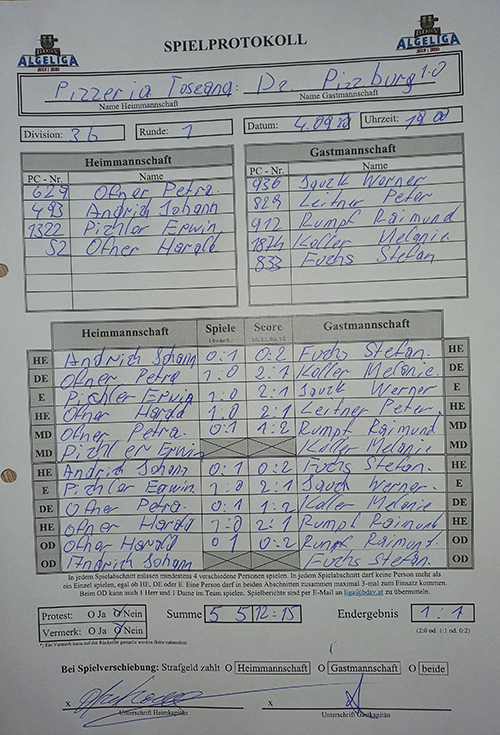 BDSV
ALGELIGA
2019 | 2020
SPIELPROTOKOLL
BDSV
ALGELIGA
2019 | 2020
Pizzeria Toscana : De Pizzburg 1.0
Name Heimmannschaft Name Gastmannschaft
Division: 3b Runde: 1 Datum: 4.09 Uhrzeit: 19 00
Heimmannschaft Gastmannschaft
PC - Nr. Name PC - Nr. Name
629 Ofner Petra 936 Sauck Werner
493 Andrich Johann 829 Leitner Peter
1322 Pichler Erwin 912 Rumpf Raimund
52 Ofner Harald 1874 Koller Melanie
833 Fuchs Stefan
Heimmannschaft Spiele Score Gastmannschaft
HE Andrich Johann 0:1 0:2 Fuchs Stefan HE
DE Ofner Petra 1:0 2:1 Koller Melanie DE
E Pichler Erwin 1:0 2:1 Sauck Werner E
HE Ofner Harald 1:0 2:1 Leitner Peter HE
MD Ofner Petra 0:1 1:2 Rumpf Raimund MD
MD Pichler Erwin Koller Melanie MD
HE Andrich Johann 0:1 0:2 Fuchs Stefan HE
E Pichler Erwin 1:0 2:1 Sauck Werner E
DE Ofner Petra 0:1 1:2 Koller Melanie DE
HE Ofner Harald 1:0 2:1 Rumpf Raimund HE
OD Ofner Harald 0 1 0:2 Rumpf Raimund OD
OD Andrich Johann Fuchs Stefan OD
In jedem Spielabschnitt müssen mindestens 4 verschiedene Personen spielen. In jedem Spielabschnitt darf keine Person mehr als
ein Einzel spielen, egal ob HE, DE oder E. Eine Person darf in beiden Abschnitten zusammen maximal 3-mal zum Einsatz kommen.
Beim OD kann auch 1 Herr und 1 Dame im Team spielen. Spielberichte sind per E-Mail an liga@bdsv.at zu übermitteln.
Protest: O Ja O Nein Summe 5 5 12:15 Endergebnis 1:1
Vermerk: O Ja O Nein (2:0 od. 1:1 od. 0:2)
*) Ein Vermerk kann auf der Rückseite gemacht werden (bitte ankreuzen)
Bei Spielverschiebung: Strafgeld zahlt O Heimmannschaft O Gastmannschaft O beide
x x
Unterschrift Heimkapitän Unterschrift Gastkapitän